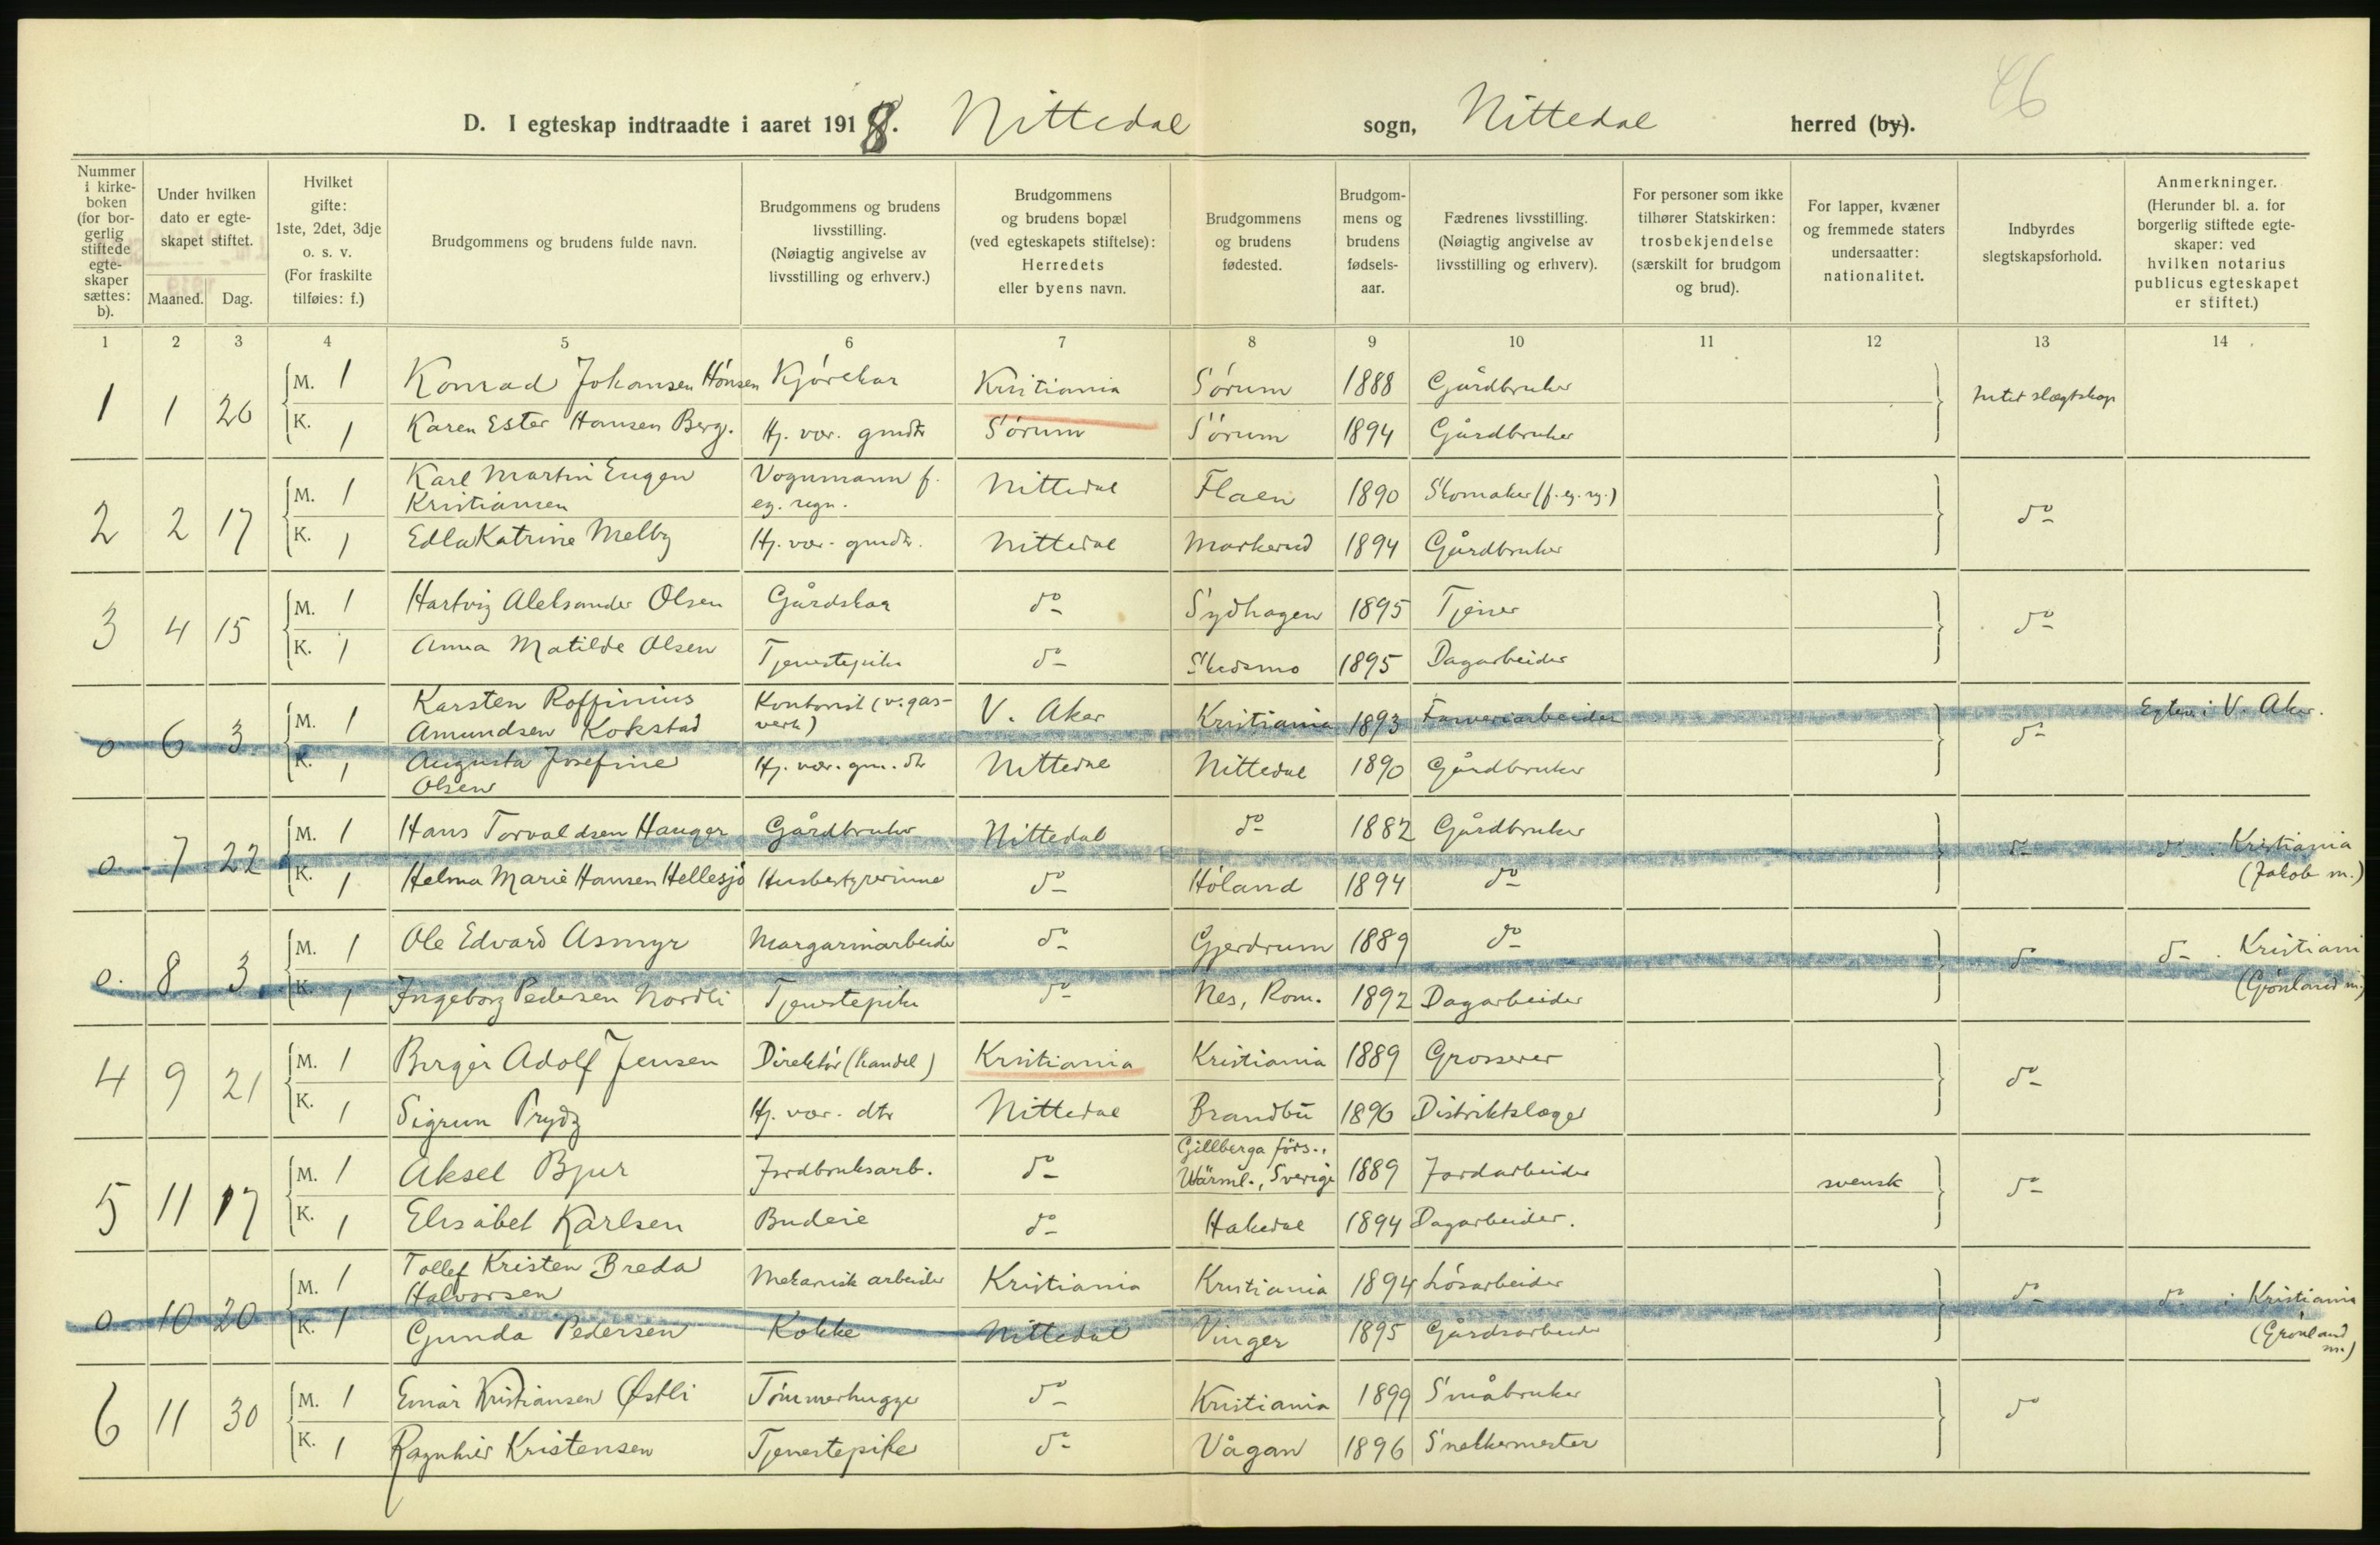 46
D. I egteskap indtraadte i aaret 1918. Nittedal sogn, Nittedal herred (by).
Nummer i kirke-boken (for bor-gerlig stiftede egte-skaper sættes: b). Under hvilken dato er egte-skapet stiftet. Maaned. Dag. Hvilket gifte: 1ste, 2det, 3dje o. s. v. (For fraskilte tilføies: f.) Brudgommens og brudens fulde navn. Brudgommens og brudens livsstilling. (Nøiagtig angivelse av livsstilling og erhverv.) Brudgommens og brudens bopæl (ved egteskapets stiftelse): Herredets eller byens navn. Brudgommens og brudens fødested. Brudgom-mens og brudens fødsels-aar. Fædrenes livsstilling. (Nøiagtig angivelse av livsstilling og erhverv). For personer som ikke tilhører Statskirken: trosbekjendelse (særskilt for brudgom og brud). For lapper, kvæner og fremmede staters undersaatter: nationalitet. Indbyrdes slegtskapsforhold. Anmerkninger. (Herunder bl. a. for borgerlig stiftede egte-skaper: ved hvilken notarius publicus egteskapet er stiftet.)
1 2 3 4 5 6 7 8 9 10 11 12 13 14
1 1 26 M. 1 Konrad Johansen Hønsen Kjørekar Kristiania Sørum 1888 Gårdbruker Intet slægtskap
K. 1 Karen Ester Hansen Berg. Hj. vær. gmdtr Sørum Sørum 1894 Gårdbruker
2 2 17 M. 1 Karl Martin Eugen Kristiansen Vognmann f. eg. regn. Nittedal Flaen 1890 Skomaker (f. eg. rg.) do
K. 1 Edla Katrine Melby Hj. vær. gmdtr. Nittedal Markerud 1894 Gårdbruker
3 4 15 M. 1 Hartvig Aleksander Olsen Gårdskar do Sydhagen 1895 Tjener do
K. 1 Anna Matilde Olsen Tjenestepike do Skedsmo 1895 Dagarbeider
0 6 3 M. 1 Karsten Roffinius Amundsen Kokstad Kontorist (v. gas-verk) V. Aker Kristiania 1893 Farveriarbeider do Egtev. i V. Aker.
K. 1 Augusta Josefine Olsen Hj. vær. gm. dtr Nittedal Nittedal 1890 Gårdbruker
0 7 22 M. 1 Hans Torvaldsen Hauger Gårdbruker Nittedal do 1882 Gårdbruker do do . Kristiania
K. 1 Helma Marie Hansen Hellesjø Husbestyrerinne do Høland 1894 do (Jakob m.)
0. 8 3 M. 1 Ole Edvard Asmyr Margarinarbeider do Gjerdrum 1889 do do do . Kristiani
K. 1 Ingeborg Pedersen Nordli Tjenestepike do Nes, Rom. 1892 Dagarbeider (Grønland m.)
4 9 21 M. 1 Birger Adolf Jensen Direktør (handel) Kristiania Kristiania 1889 Grosserer do
K. 1 Sigrun Prydz Hj. vær. dtr Nittedal Brandbu 1896 Distriktslæge
5 11 17 M. 1 Aksel Bjur Jordbruksarb. do Gillberga förs., Wärml., Sverige 1889 Jordarbeider svensk do
K. 1 Elisabet Karlsen Budeie do Hakedal 1894 Dagarbeider.
0 10 20 M. 1 Tollef Kristen Breda Halvorsen Mekanisk arbeider Kristiania Kristiania 1894 Løsarbeider do do i Kristiania
K. 1 Gunda Pedersen Kokke Nittedal Vinger 1895 Gårdsarbeider (Grønland m.)
6 11 30 M. 1 Einar Kristiansen Østli Tømmerhugger do Kristiania 1899 Småbruker do
K. 1 Ragnhild Kristensen Tjenestepike do Vågan 1896 Snekkermester